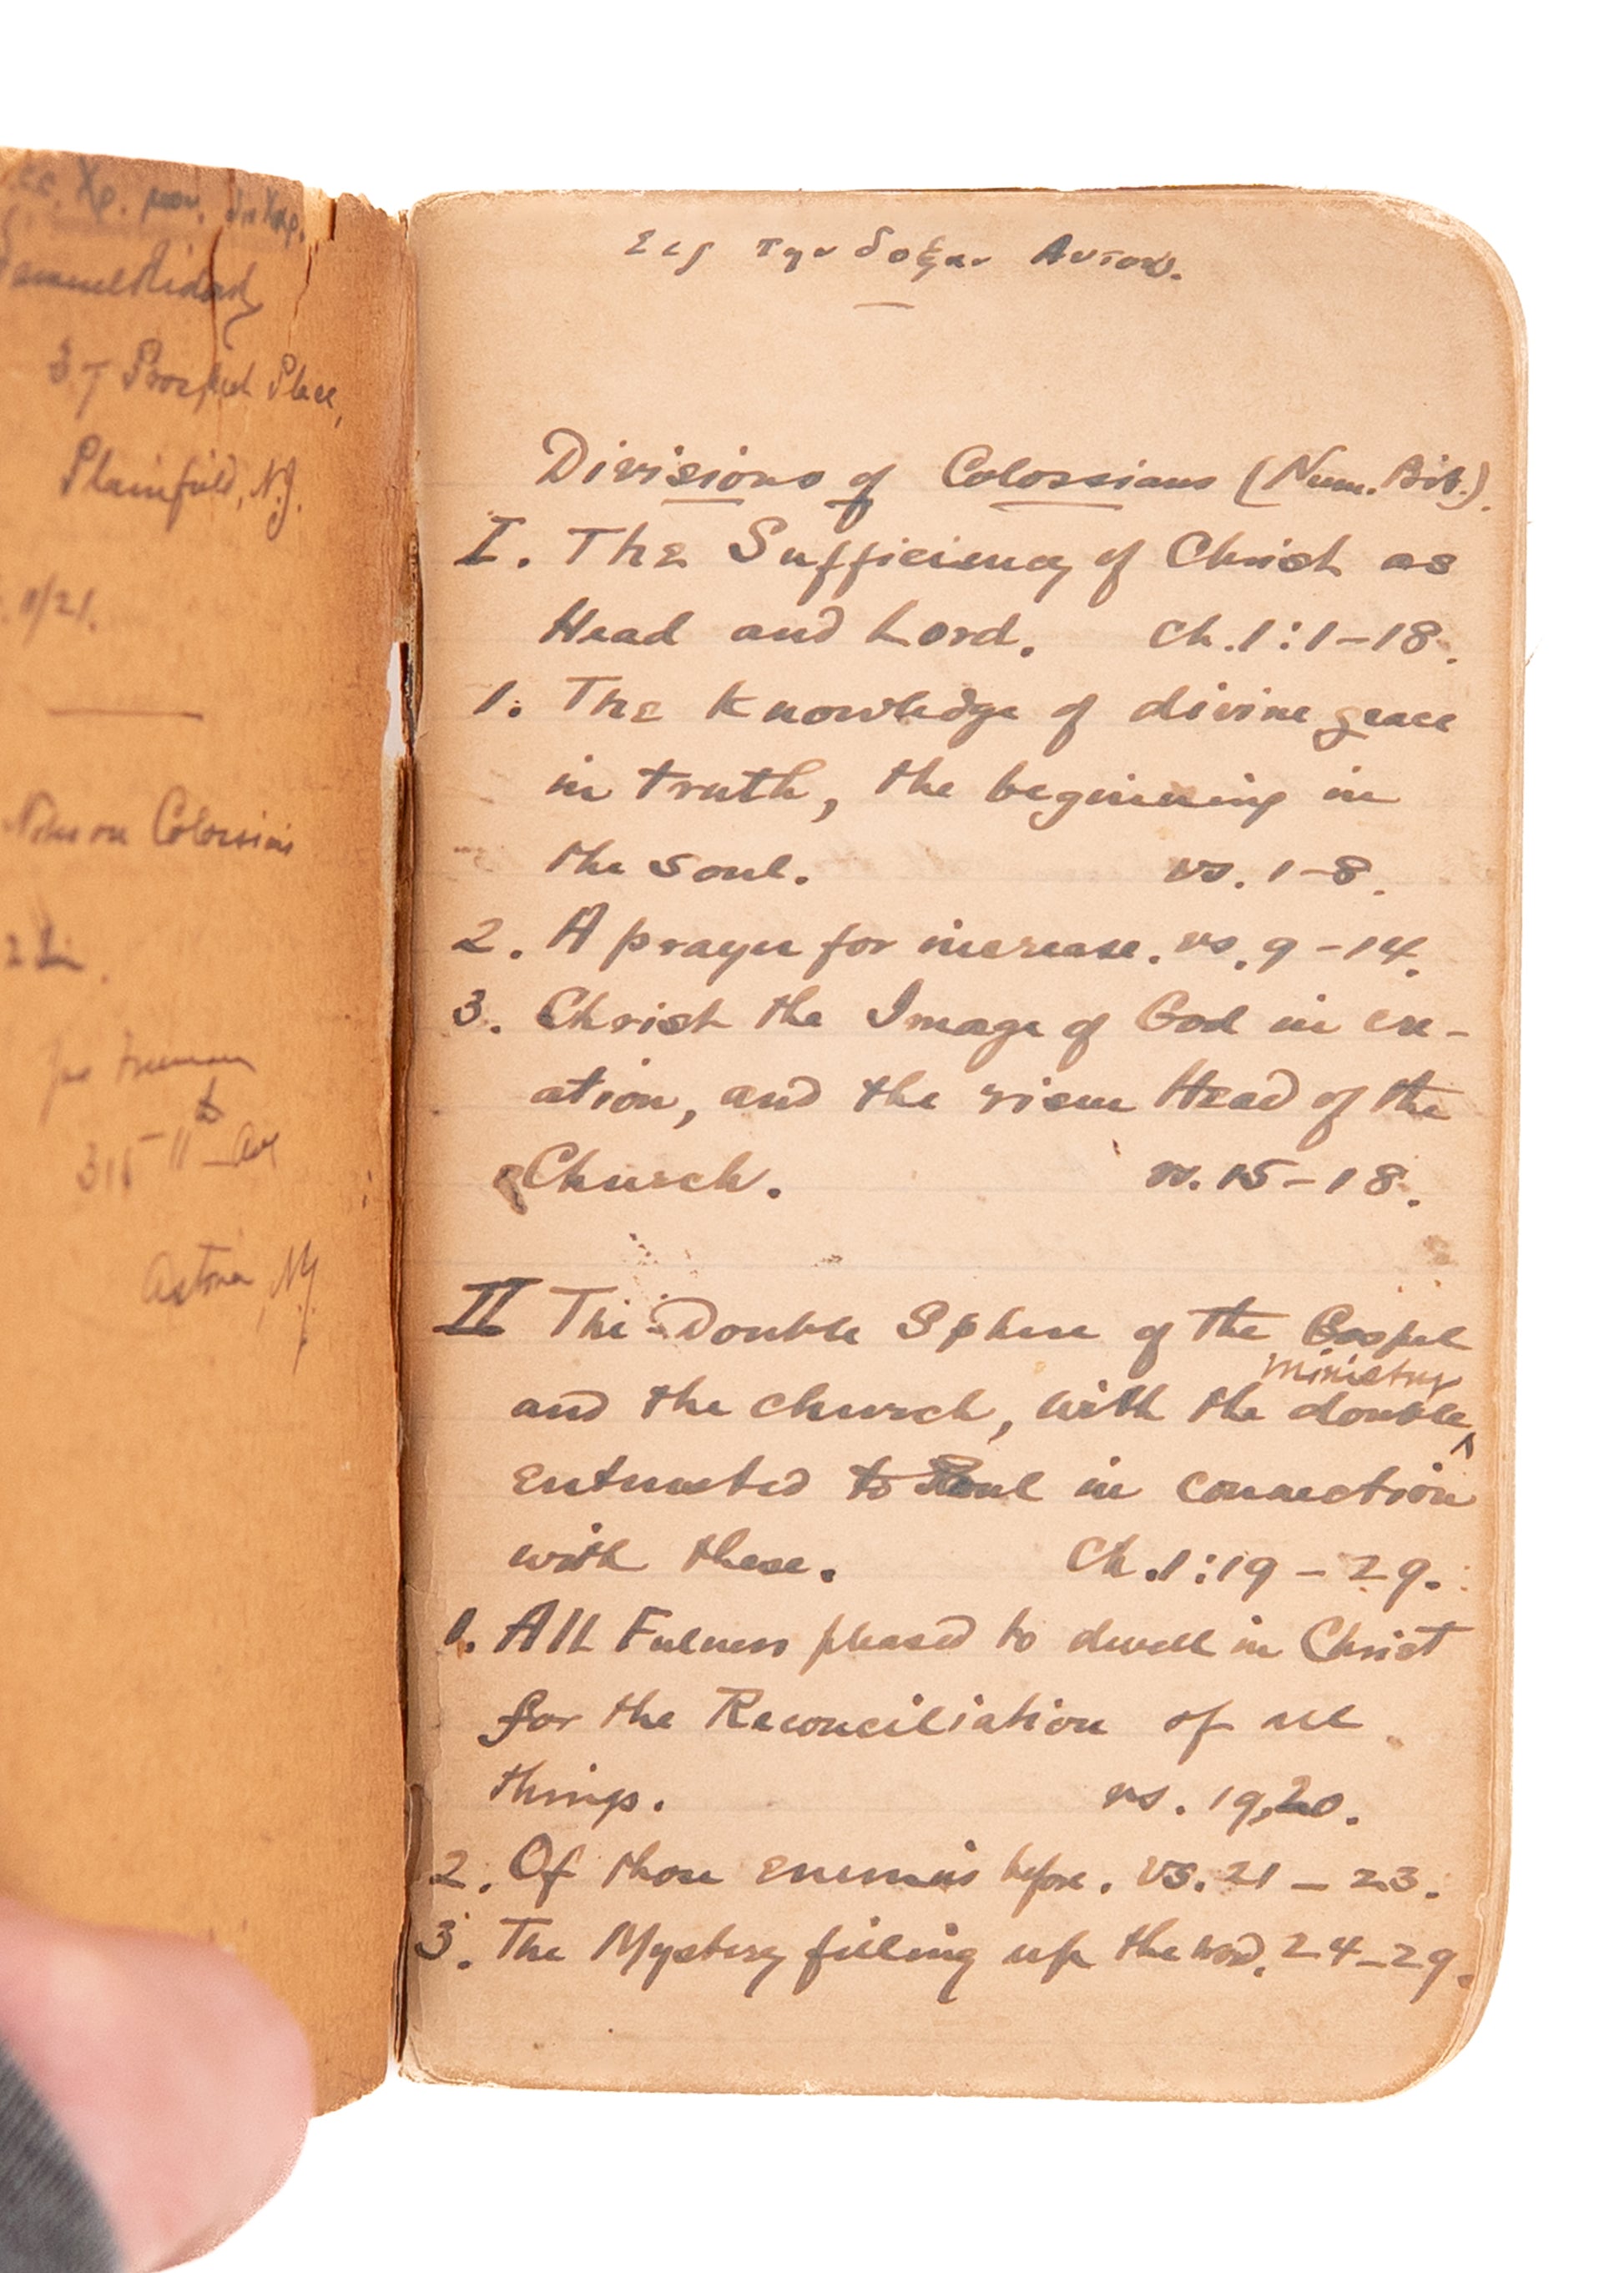 Samuel Ridout
37 Prospect Place,
Plainfield, N.J.
11/21.
Notes on Colossians
315 11th Ave
Astoria, N.Y.
Εις την δοξαν Αυτου.
Divisions of Colossians (Num. Bib.).
I. The Sufficiency of Christ as
Head and Lord. Ch. 1:1-18.
1. The Knowledge of divine grace
in truth, the beginning in
the soul. vs. 1-8.
2. A prayer for increase. vs. 9-14.
3. Christ the Image of God in cre-
ation, and the risen Head of the
Church. vs. 15-18.
II The Double Sphere of the Gospel
ministry
and the church, with the double ^
entrusted to Paul in connection
with these. Ch. 1:19-29.
1. All Fulness pleased to dwell in Christ
for the Reconciliation of all
things. vs. 19,20.
2. Of those enemies before. vs. 21-23.
3. The Mystery filling up the word. 24-29.